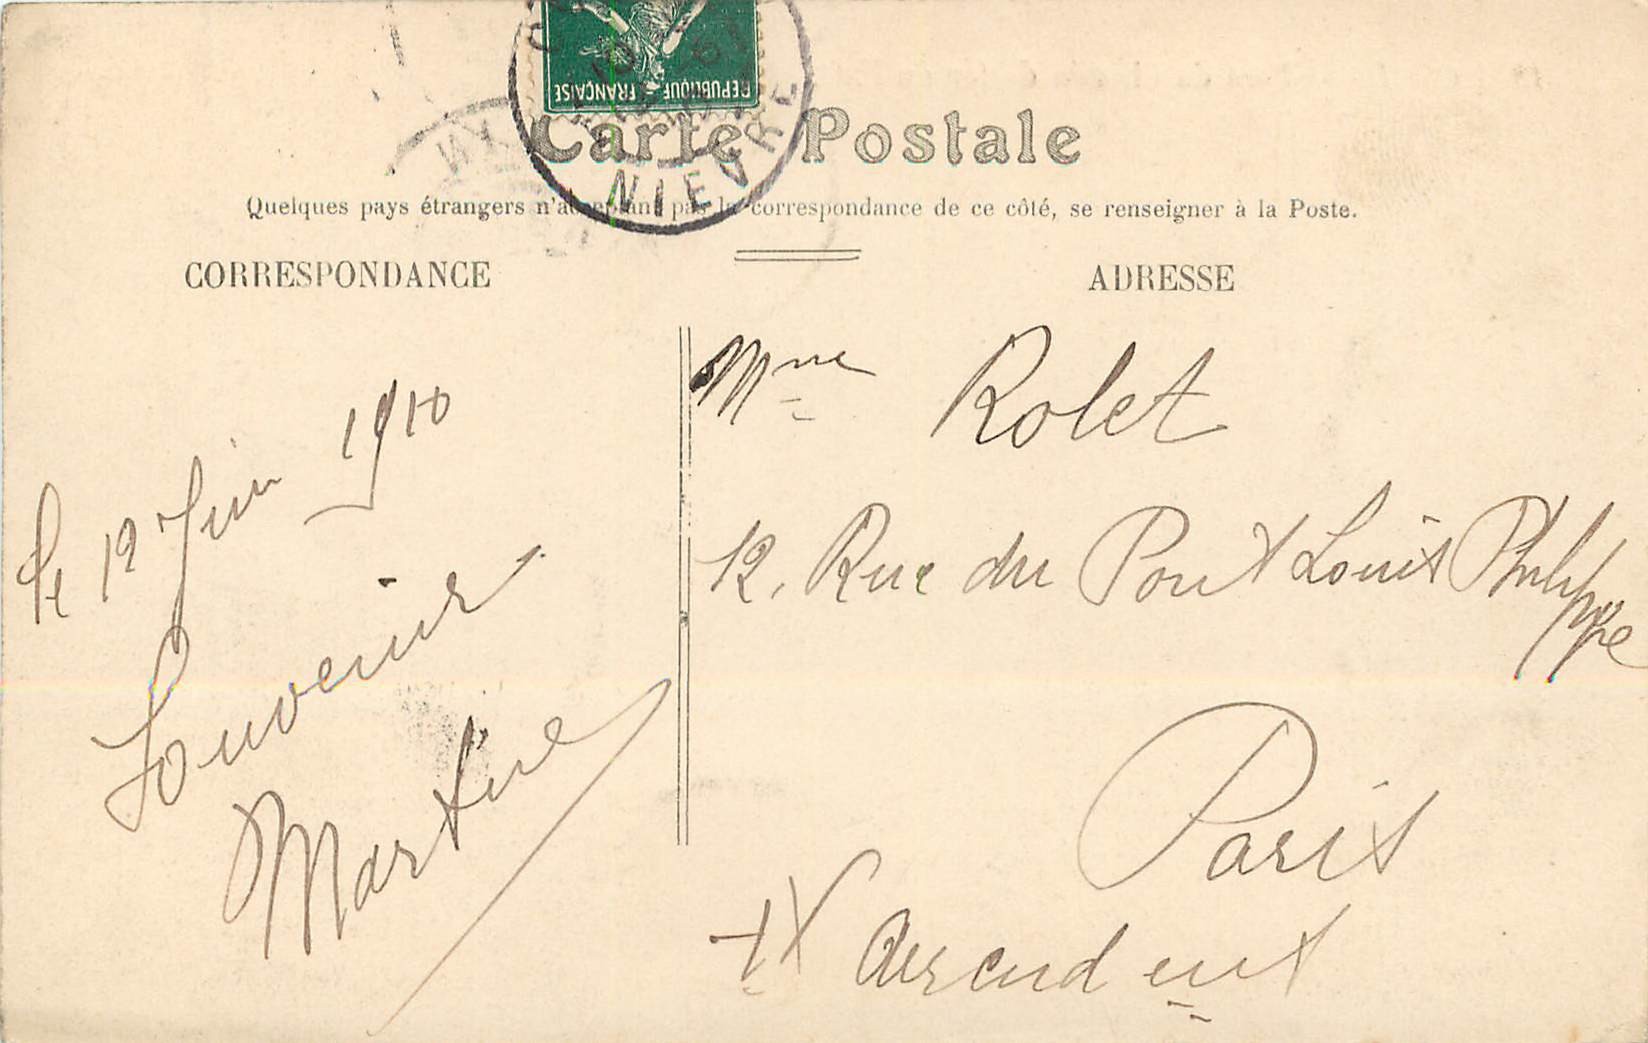 REPUBLIQUE FRANÇAISE
NIEVRE
Carte Postale
Quelques pays étrangers n'acceptant pas la correspondance de ce côté, se renseigner à la Poste.
CORRESPONDANCE
le 12 Juin 1910
Souvenirs
Martine
ADRESSE
Mme Rolet
12, Rue du Pont Louis Philippe
Paris